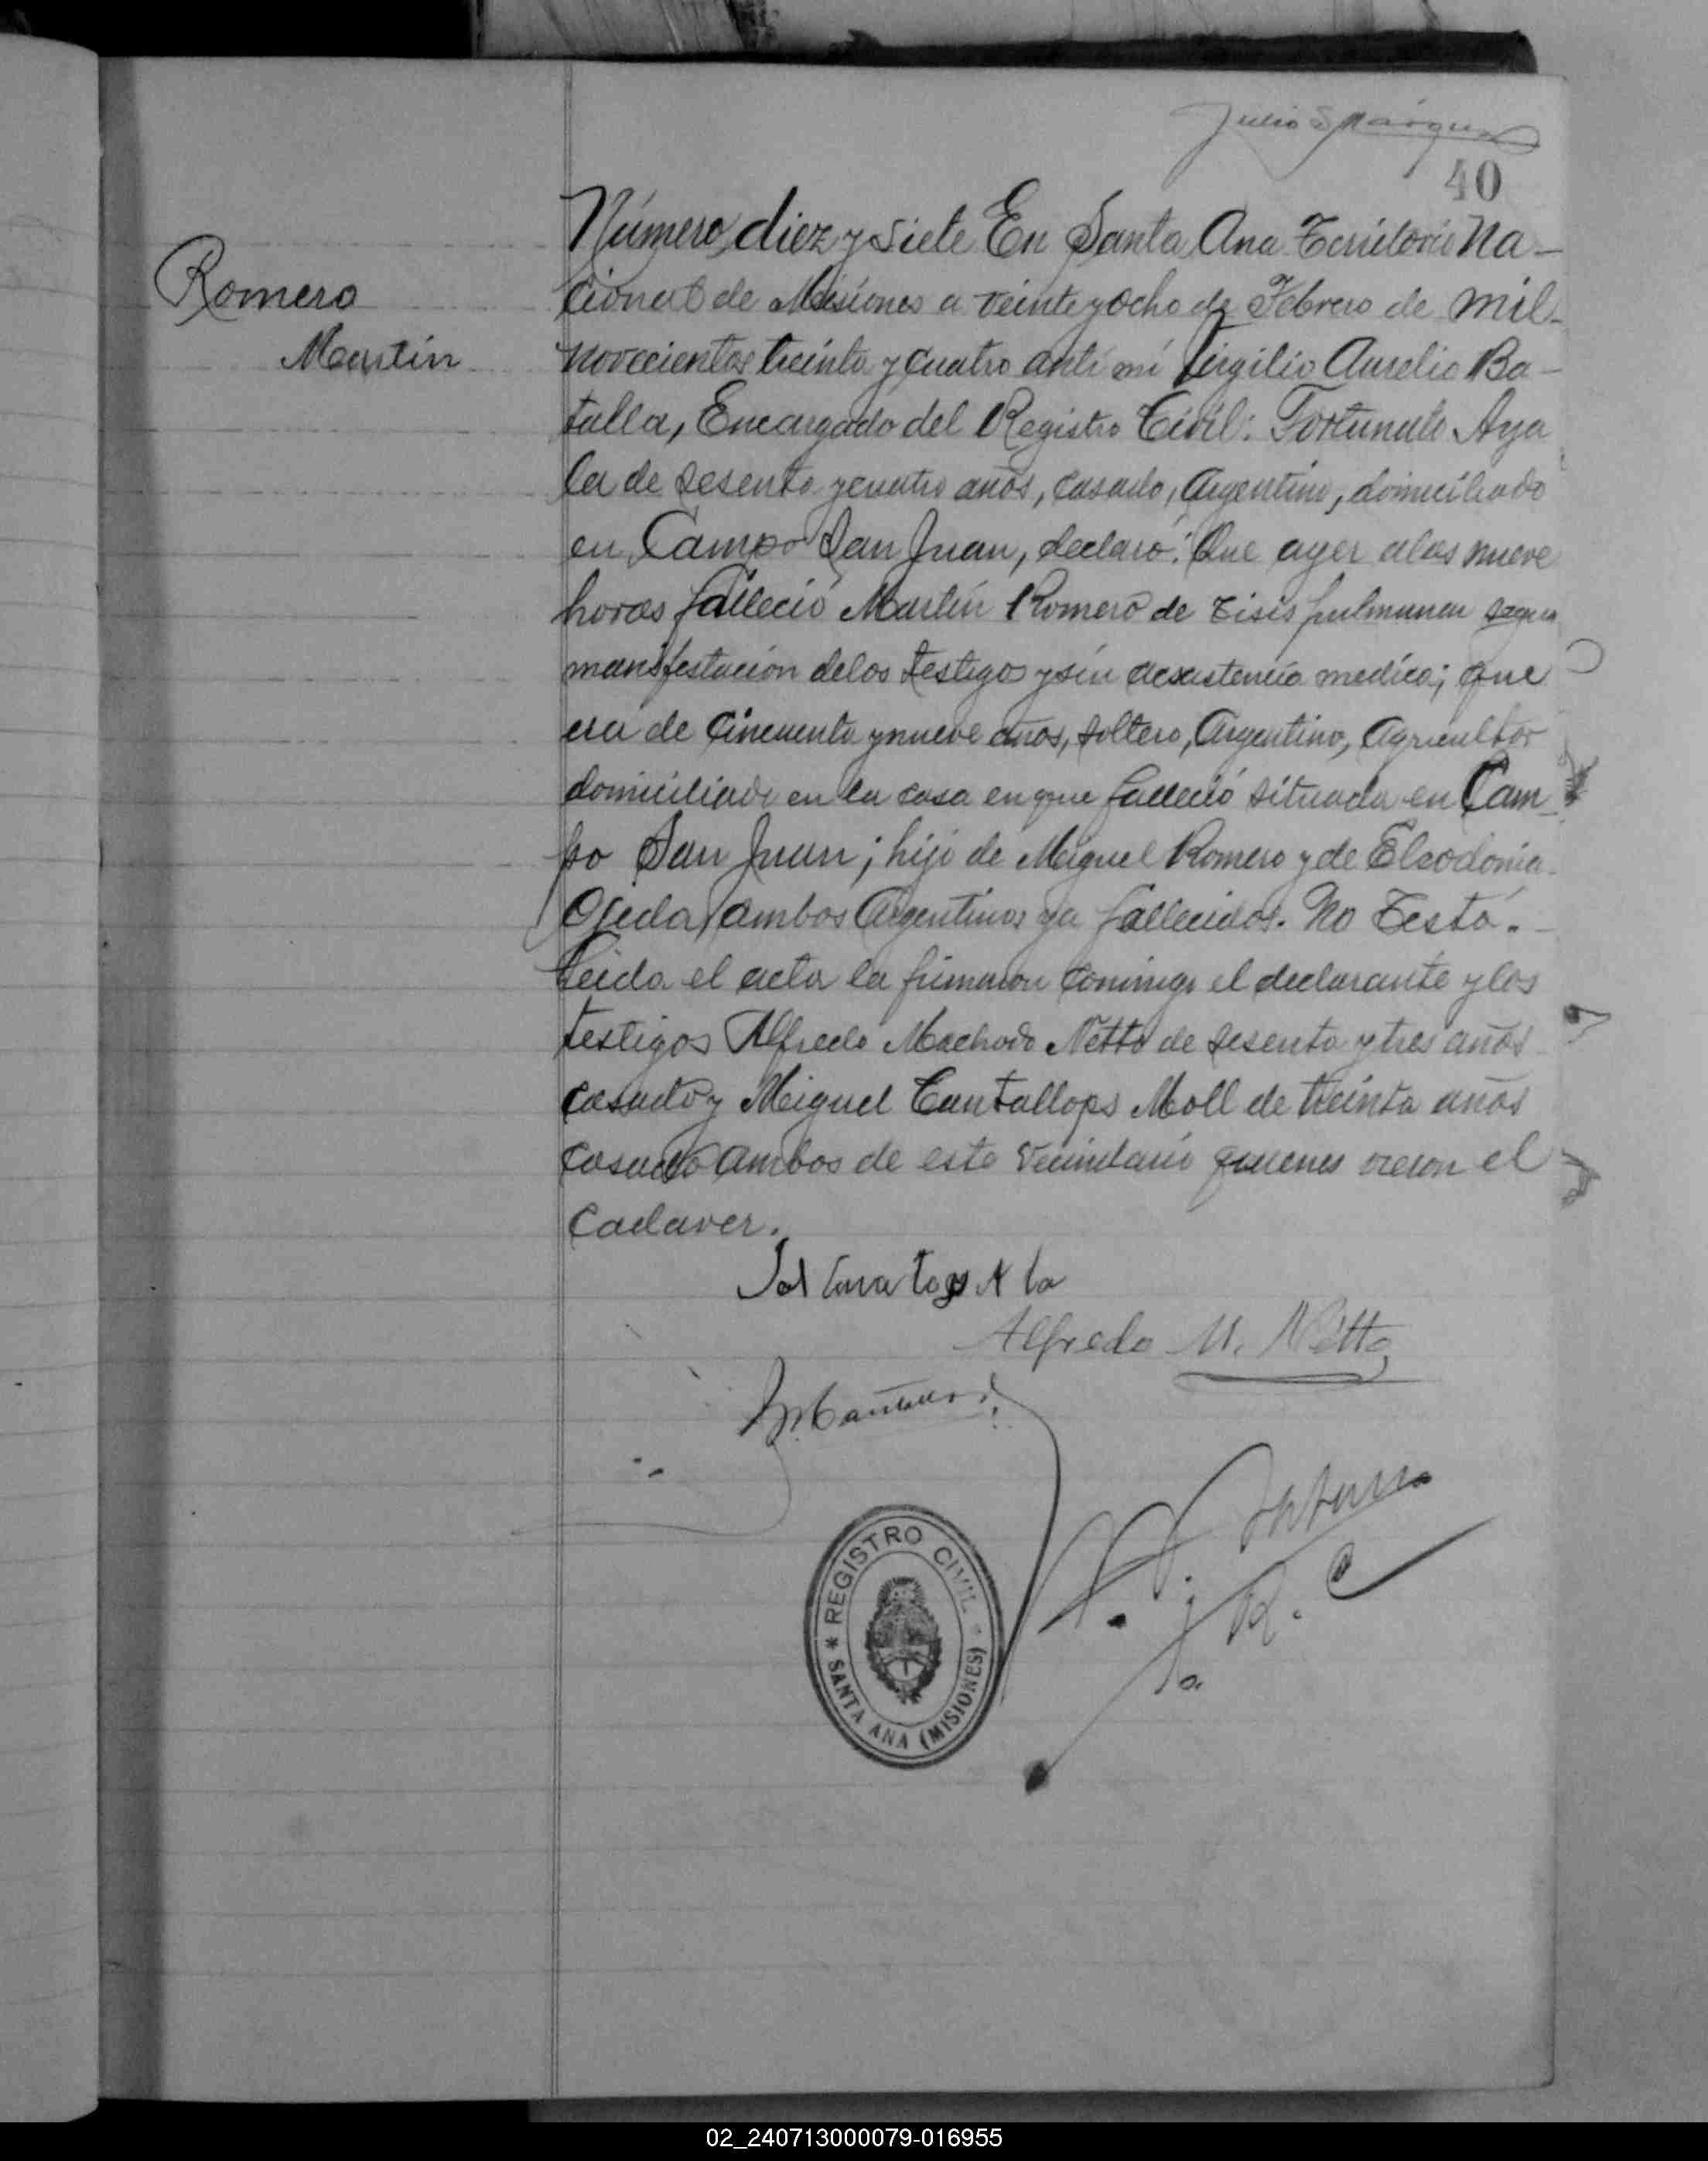 Julio S Márquez
40
Romero
Martín
Número diez y siete En Santa Ana Territorio Na-
cional de Misiones a veinte y ocho de Febrero de mil
novecientos treinta y cuatro ante mí Virgilio Aurelio Ba-
talla, Encargado del Registro Civil: Fortunato Aya
la de sesenta y cuatro años, casado, Argentino, domiciliado
en Campo San Juan, declaró: Que ayer a las nueve
horas falleció Martín Romero de tisis pulmunar segun
manifestación de los testigos y sin asistencia medica; que
era de cincuenta y nueve años, soltero, Argentino, Agricultor
domiciliado en la casa en que falleció situada en Cam-
po San Juan; hijo de Miguel Romero y de
Ojeda, ambos Argentinos ya fallecidos. No Testó.
Leida el acta la firmaron conmigo el declarante y los
testigos Alfredo Machado Netto de sesenta y tres años
casado y Miguel Cantallops Moll de treinta años
casado ambos de este vecindario quienes vieron el
Cadaver.
Alfredo M. Netto
REGISTRO CIVIL
* SANTA ANA (MISIONES)
R. C
02_240713000079-016955